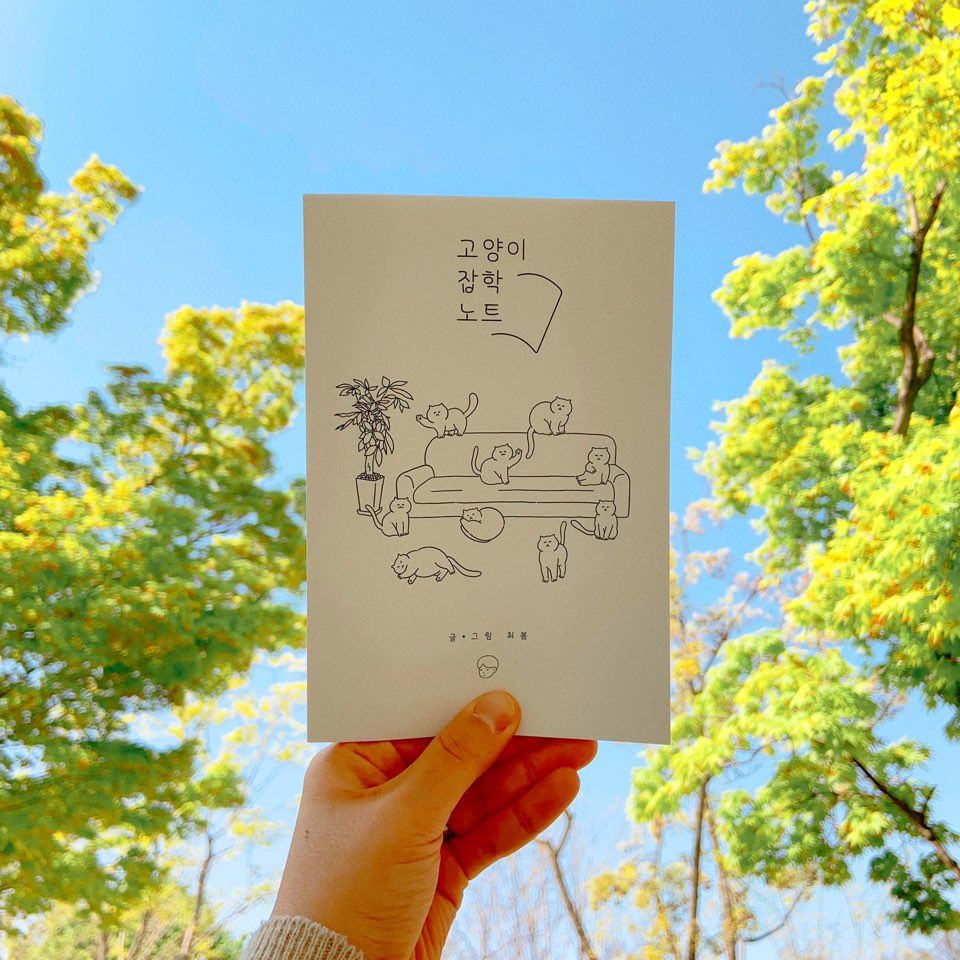 고양이
잡학
노트
글•그림 최봄